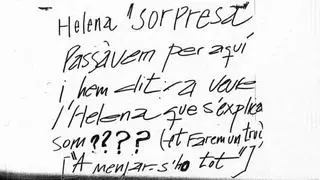 Helena "sorpresa"
Passàvem per aquí
i hem dit: a veure
l'Helena que s'explica
som ???? (et farem un truc)
["A menjar-s'ho tot"]